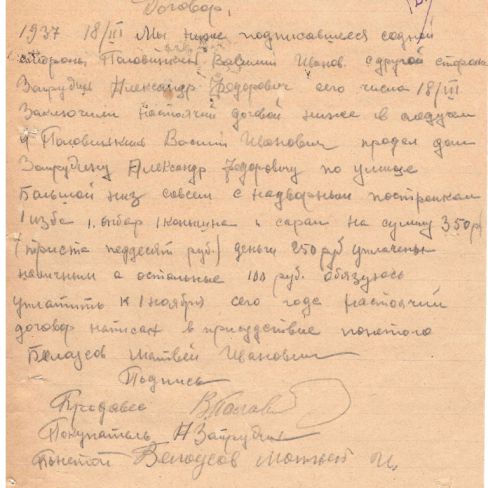 Договор.
1937 18/III Мы ниже подписавшиеся содной
стороны Половинкин Василий Иванов с другой стороны
Запрудин Александр Федорович сего числа 18/III
Заключили настоячи договой ниже в следучем
я Половинкин Василий Иванович продал дом
Запрудину Александр Федоровичу по улице
Большой низ совсем с надворным постройкам
1 изба 1 амбар 1 конюшна и сарай на сумму 350 р
(триста педдесят руб.) деньги 250 руб уплачены
наличними а остальные 100 руб. обязуюсь
уплатить к 1 ноября сего года настоячий
договор написан в присудствие понетого
Белоусов Матвей Иванович
Подпись
Продавец В.Полов
Покупатель А Запрудин
Понетой Белоусов Матвей И.